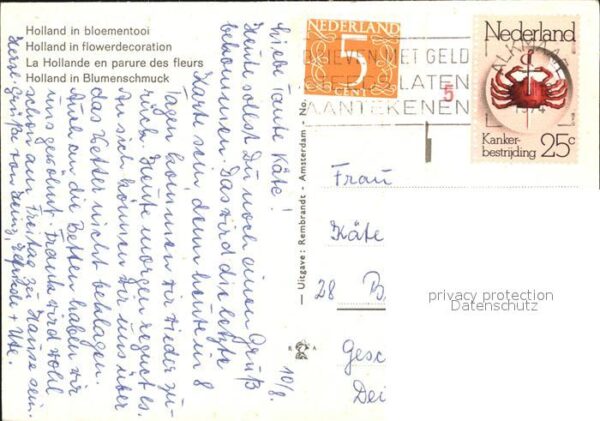 Holland in bloementooi
Holland in flowerdecoration
La Hollande en parure des fleurs
Holland in Blumenschmuck
10/8.
Liebe Tante Käte!
Heute sollst Du noch einen Gruß
bekommen. Das wird die letzte
Karte sein, denn heute in 8
Tagen kommen wir wieder zu-
rück. Heute morgen regnet es.
An sich können wir uns über
das Wetter nicht beklagen.
Auch an die Betten haben wir
uns gewöhnt. Frauke wird wohl
schon am Freitag zu Hause sein.
Herzl. Grüße von Heinz, + Ute.
— Uitgave: Rembrandt - Amsterdam - No.
R A
NEDERLAND
5
CENT
BRIEVEN MET GELD
LATEN
AANTEKENEN
5
ALKMAAR
1974
Nederland
Kanker-
bestrijding 25c
Frau
Käte
28 B
Gesc
Dei
privacy protection
Datenschutz